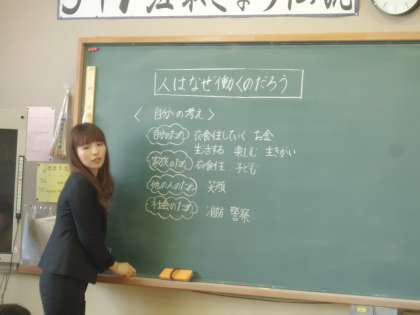 人はなぜ働くのだろう
〈 自分の考え 〉
自分のため 衣食住していく お金
生きがい 楽しむ
家族のため 衣食住 子ども
他の人のため 笑顔
社会のため 消防 警察